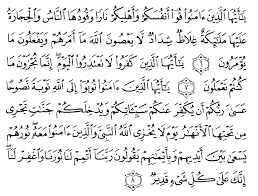 يَٰٓأَيُّهَا ٱلَّذِينَ ءَامَنُوا۟ قُوٓا۟ أَنفُسَكُمْ وَأَهْلِيكُمْ نَارًا وَقُودُهَا ٱلنَّاسُ وَٱلْحِجَارَةُ
عَلَيْهَا مَلَٰٓئِكَةٌ غِلَاظٌ شِدَادٌ لَّا يَعْصُونَ ٱللَّهَ مَآ أَمَرَهُمْ وَيَفْعَلُونَ مَا
يُؤْمَرُونَ ٦ يَٰٓأَيُّهَا ٱلَّذِينَ كَفَرُوا۟ لَا تَعْتَذِرُوا۟ ٱلْيَوْمَ إِنَّمَا تُجْزَوْنَ مَا
كُنتُمْ تَعْمَلُونَ ٧ يَٰٓأَيُّهَا ٱلَّذِينَ ءَامَنُوا۟ تُوبُوٓا۟ إِلَى ٱللَّهِ تَوْبَةً نَّصُوحًا
عَسَىٰ رَبُّكُمْ أَن يُكَفِّرَ عَنكُمْ سَيِّـَٔاتِكُمْ وَيُدْخِلَكُمْ جَنَّٰتٍ تَجْرِى
مِن تَحْتِهَا ٱلْأَنْهَٰرُ يَوْمَ لَا يُخْزِى ٱللَّهُ ٱلنَّبِىَّ وَٱلَّذِينَ ءَامَنُوا۟ مَعَهُۥ نُورُهُمْ
يَسْعَىٰ بَيْنَ أَيْدِيهِمْ وَبِأَيْمَٰنِهِمْ يَقُولُونَ رَبَّنَآ أَتْمِمْ لَنَا نُورَنَا وَٱغْفِرْ لَنَآ
إِنَّكَ عَلَىٰ كُلِّ شَىْءٍ قَدِيرٌ ٨